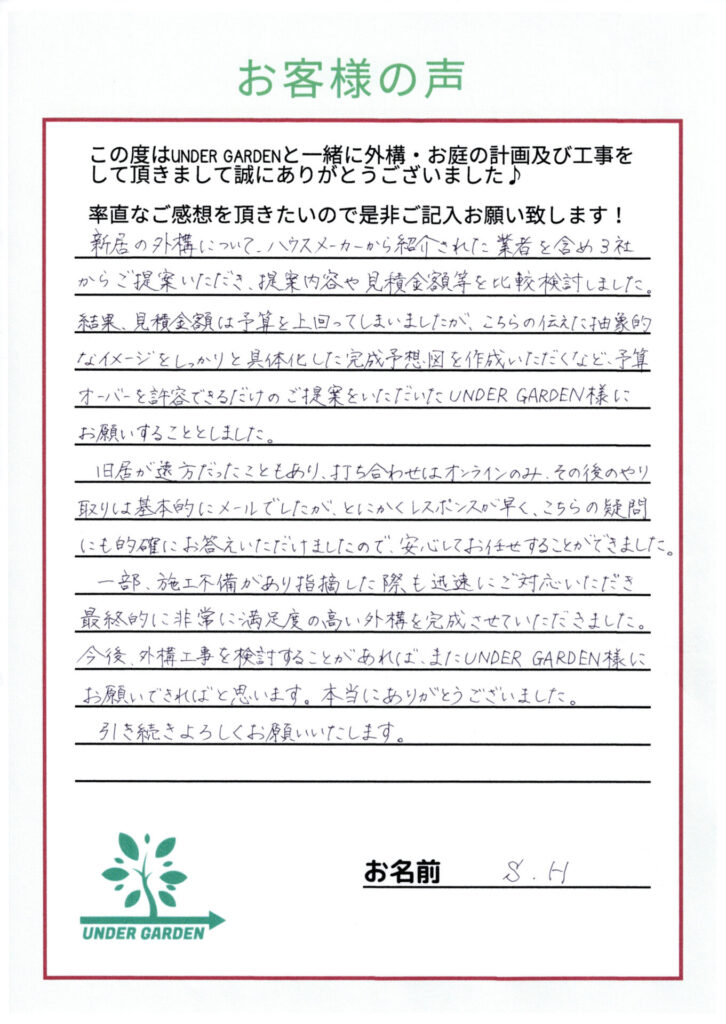 お客様の声
この度はUNDER GARDENと一緒に外構・お庭の計画及び工事を
して頂きまして誠にありがとうございました♪
率直なご感想を頂きたいので是非ご記入お願い致します！
新居の外構について、ハウスメーカーから紹介された業者を含め3社
からご提案いただき、提案内容や見積金額等を比較検討しました。
結果、見積金額は予算を上回ってしまいましたが、こちらの伝えた抽象的
なイメージをしっかりと具体化した完成予想図を作成いただくなど、予算
オーバーを許容できるだけのご提案をいただいたUNDER GARDEN様に
お願いすることとしました。
旧居が遠方だったこともあり、打ち合わせはオンラインのみ、その後のやり
取りは基本的にメールでしたが、とにかくレスポンスが早く、こちらの疑問
にも的確にお答えいただけましたので、安心してお任せすることができました。
一部、施工不備があり指摘した際も迅速にご対応いただき
最終的に非常に満足度の高い外構を完成させていただきました。
今後、外構工事を検討することがあれば、またUNDER GARDEN様に
お願いできればと思います。本当にありがとうございました。
引き続きよろしくお願いいたします。
お名前 S.H
UNDER GARDEN